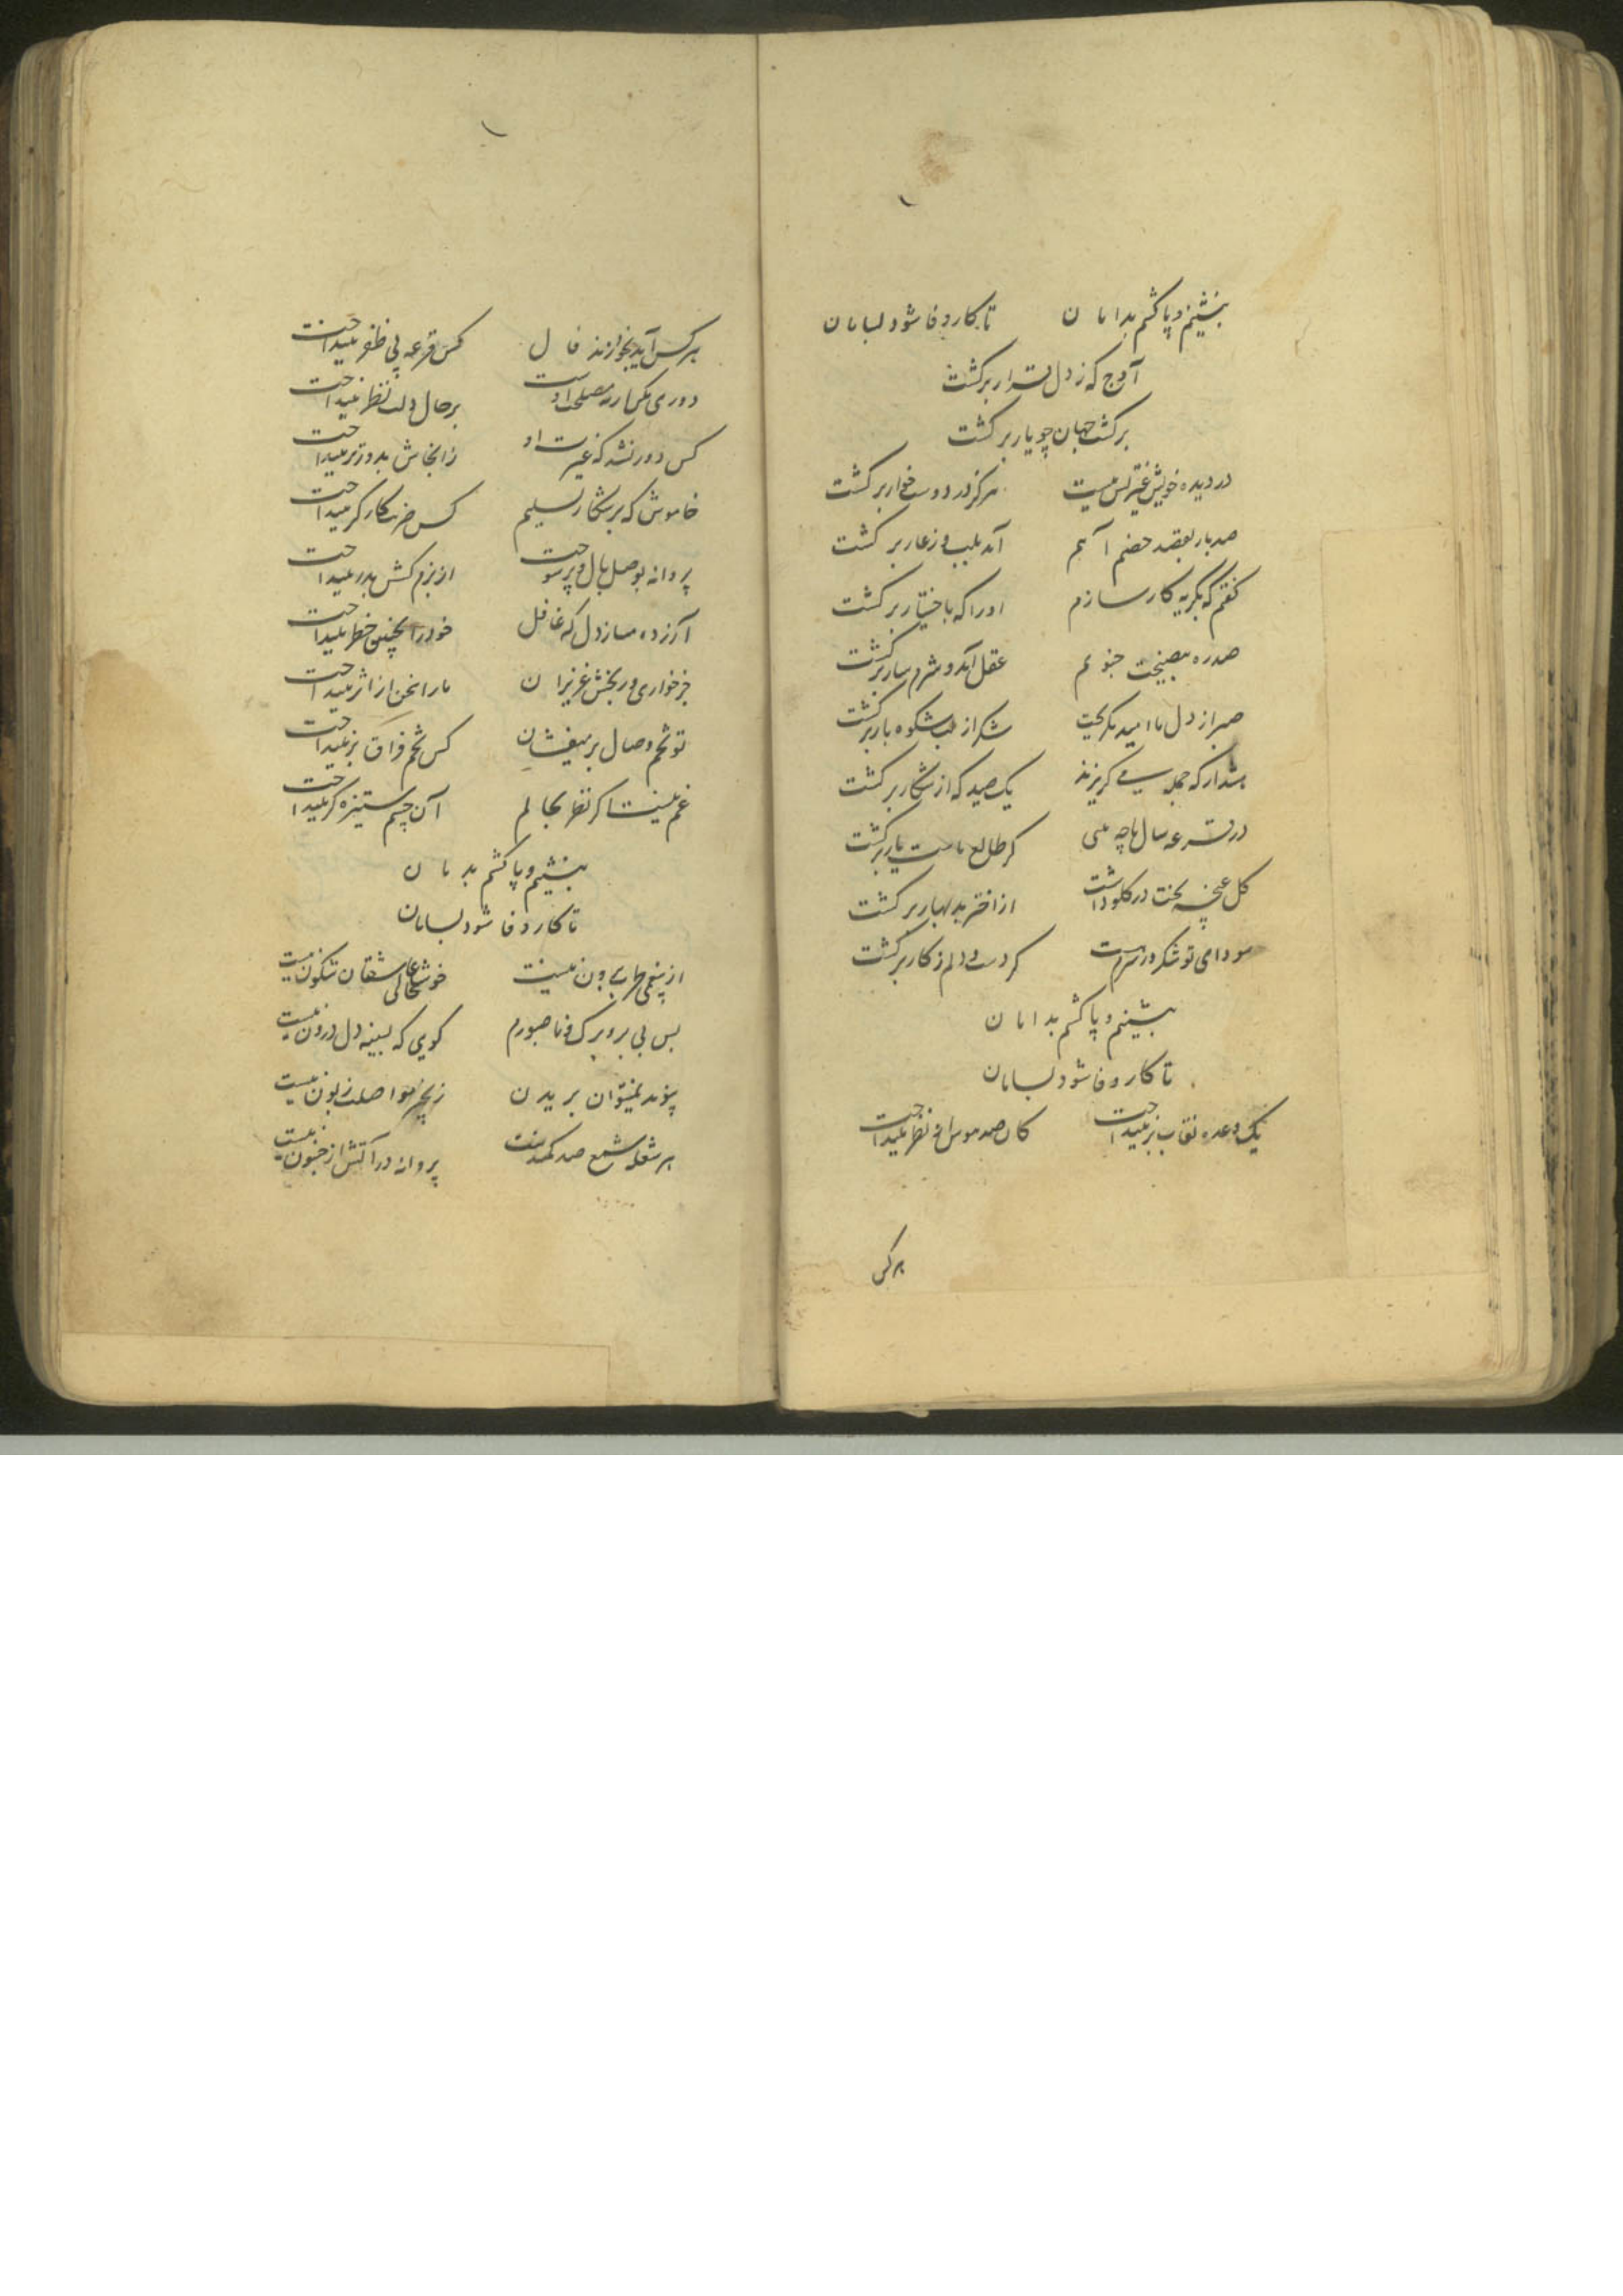 بنشینم و پا کشم بدامان تا کار وفا شود بسامان
آوج که ز دل قرار برگشت
برگشت جهان چو یار برگشت
در دیده خویش غیر کس نیست هرگز در دوست خوار برگشت
صد بار بقصد خصم آهم آمد بلب و ز عار برگشت
گفتم که بگریه کار سازم او را که باختیار برگشت
صد ره بنصیحت جنونم عقل آمد و شرمسار برگشت
صبر از دل ناامید بگریخت شکر از لب شکوه بار برگشت
هشدار که جمله می گریزند یک صید که از شکار برگشت
در قرعه سال ما چه بینی کز طالع ماست یار برگشت
گل غنچه بخت در گلو داشت از اختر بد بهار برگشت
سودای تو شکر در سرم هست گر دست و دلم ز کار برگشت
بنشینم و پا کشم بدامان
تا کار وفا شود بسامان
یک وعده نقاب بر نینداخت کان صد هوس از نظر نینداخت
هر کس
هر کس آید بخواند فال کس قرعه پی ظفر نینداخت
دوری مکن ار چه مصلحت اوست بر حال دلت نظر نینداخت
کس دور نشد که غیرت او ز آنجاش بدورتر نینداخت
خاموش که بر شکار تسلیم کس ضربت کارگر نینداخت
پروانه بوصل بال و پر سوخت از بزم کسش بدر نینداخت
آزرده مساز دل که غافل خود را بچنین خطر نینداخت
جز خواری و رنجش عزیزان ما را سخن از اثر نینداخت
تو تخم وصال بر میفشان کس تخم فراق بر نینداخت
غم نیست اگر نظر بحالم آن چشم ستیزه گر نینداخت
بنشینم و پا کشم بدامان
تا کار وفا شود بسامان
خوشحالی عاشقان شگون نیست
بس بی بر و برگ و ناصبورم گویی که بسینه دل درون نیست
پیوند نمیتوان بریدن زنجیر مواصلت زبون نیست
هر شعله شمع صد کمند است پروانه در آتش از جنون نیست